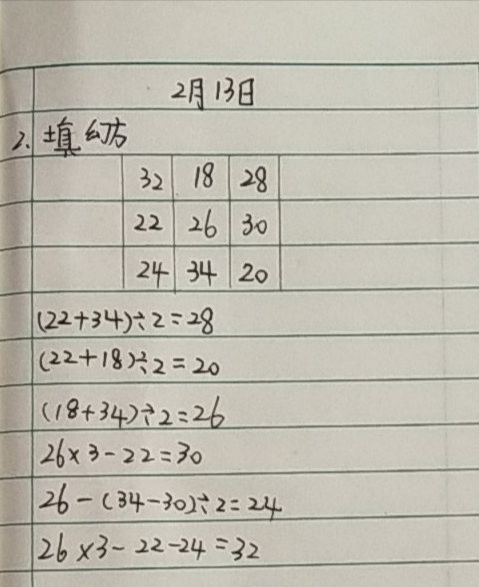 2月13日
2. 填幻方
32 18 28
22 26 30
24 34 20
(22+34)÷2=28
(22+18)÷2=20
(18+34)÷2=26
26×3-22=30
26-(34-30)÷2=24
26×3-22-24=32